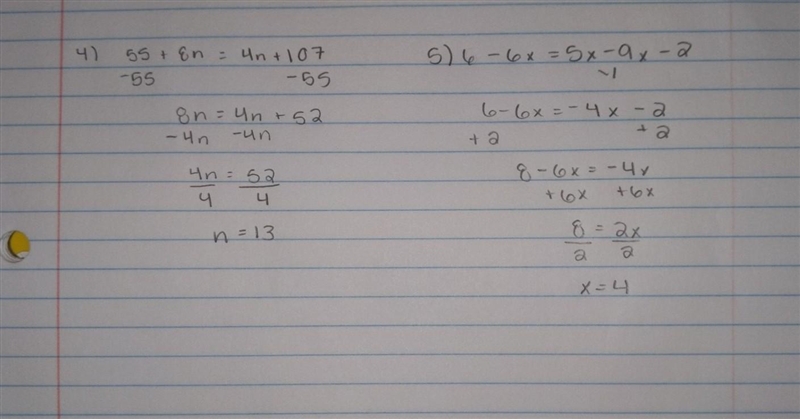 4) 55 + 8n = 4n + 107
-55 -55
8n = 4n + 52
-4n -4n
4n = 52
4 4
n = 13
5) 6 - 6x = 5x - 9x - 2
6 - 6x = -4x - 2
+2 +2
8 - 6x = -4x
+6x +6x
8 = 2x
2 2
x = 4